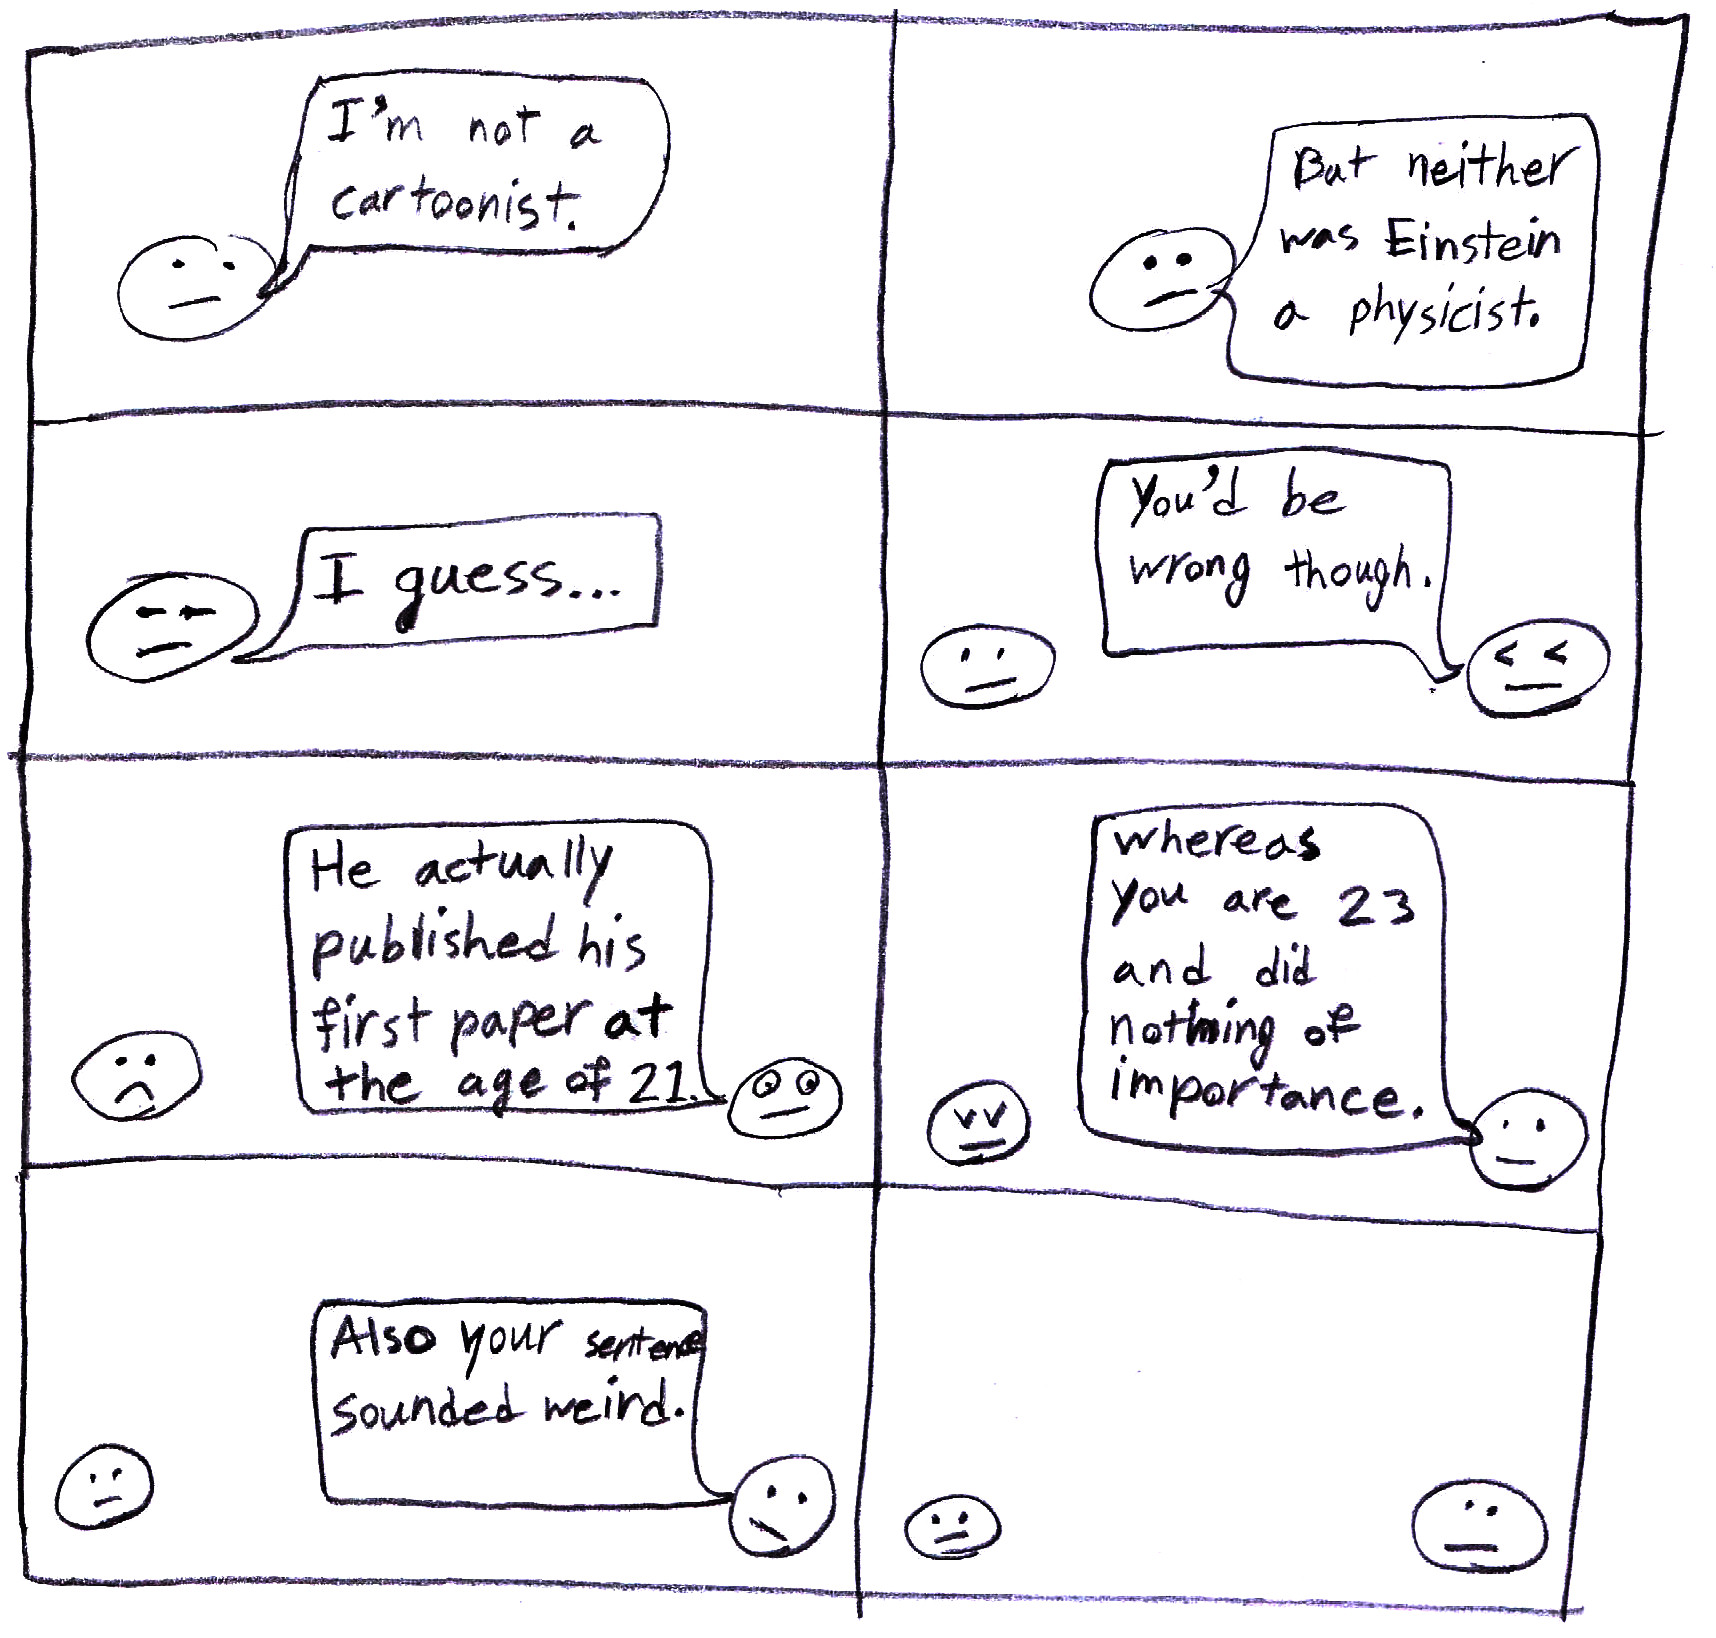 I'm not a
cartoonist.
But neither
was Einstein
a physicist.
I guess...
You'd be
wrong though.
He actually
published his
first paper at
the age of 21.
whereas
you are 23
and did
nothing of
importance.
Also your sentence
sounded weird.